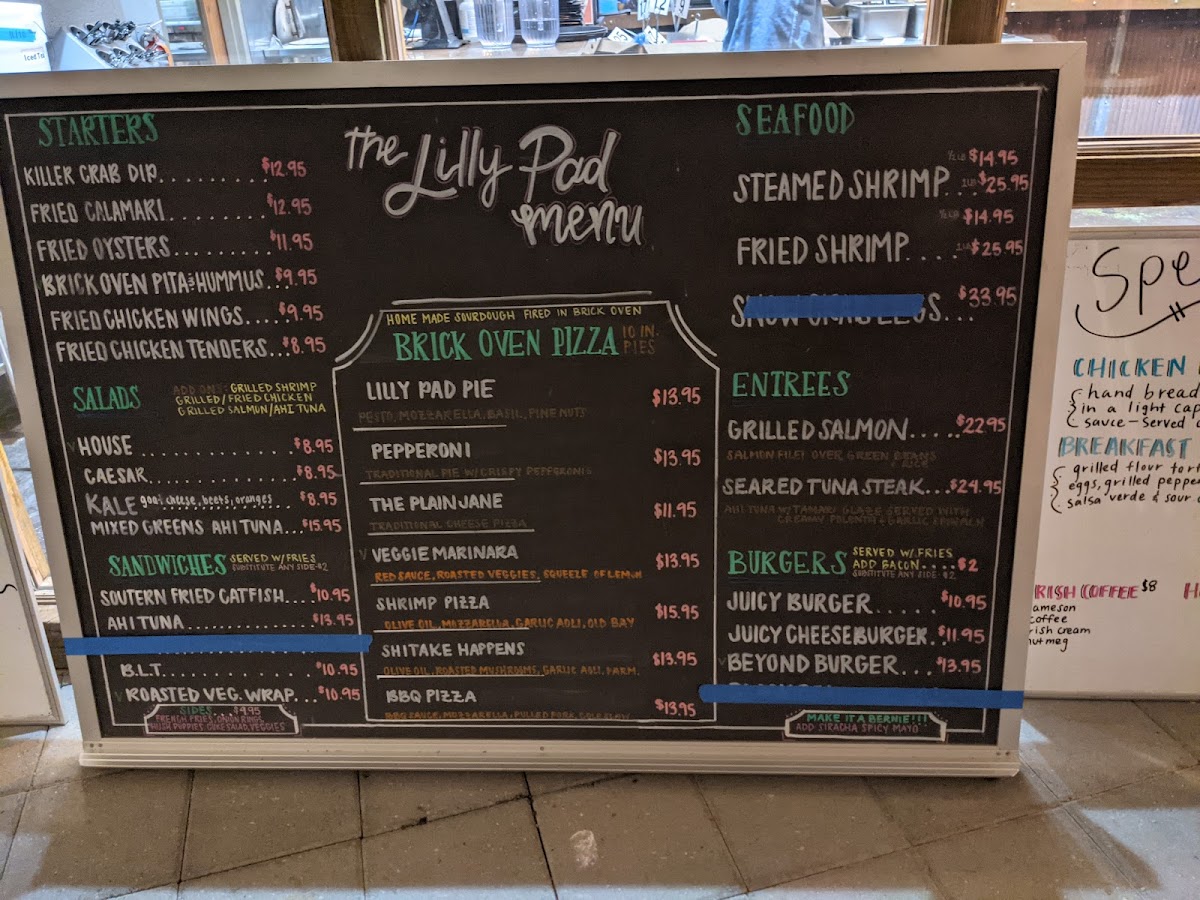 Iced Tea
the Lilly Pad
menu
STARTERS
KILLER CRAB DIP......... $12.95
FRIED CALAMARI......... $12.95
FRIED OYSTERS......... $11.95
BRICK OVEN PITA & HUMMUS... $9.95
FRIED CHICKEN WINGS.... $9.95
FRIED CHICKEN TENDERS... $8.95
SALADS
ADD ONS: GRILLED SHRIMP
GRILLED/FRIED CHICKEN
GRILLED SALMON/AHI TUNA
HOUSE ................ $8.95
CAESAR................ $8.95
KALE goat cheese, beets, oranges .. $8.95
MIXED GREENS AHI TUNA... $15.95
SANDWICHES SERVED W/FRIES
SUBSTITUTE ANY SIDE $2
SOUTERN FRIED CATFISH... $10.95
AHI TUNA ............. $13.95
B.L.T. ............... $10.95
ROASTED VEG. WRAP... $10.95
SIDES.... $4.95
FRENCH FRIES, ONION RINGS,
HUSH PUPPIES, COLE SLAW, VEGGIES
HOME MADE SOURDOUGH FIRED IN BRICK OVEN
BRICK OVEN PIZZA 10 IN. PIES
LILLY PAD PIE $13.95
PESTO, MOZZARELLA, BASIL, PINE NUTS
PEPPERONI $13.95
TRADITIONAL PIE W/ CRISPY PEPPERONIS
THE PLAIN JANE $11.95
TRADITIONAL CHEESE PIZZA
VEGGIE MARINARA $13.95
RED SAUCE, ROASTED VEGGIES, SQUEEZE OF LEMON
SHRIMP PIZZA $15.95
OLIVE OIL, MOZZARELLA, GARLIC AOLI, OLD BAY
SHITAKE HAPPENS $13.95
OLIVE OIL, ROASTED MUSHROOMS, GARLIC AOLI, PARM.
BBQ PIZZA $13.95
BBQ SAUCE, MOZZARELLA, PULLED PORK, COLE SLAW
SEAFOOD
½ LB $14.95
STEAMED SHRIMP... 1LB $25.95
½ LB $14.95
FRIED SHRIMP.... 1LB $25.95
SNOW CRAB LEGS... $33.95
ENTREES
GRILLED SALMON..... $22.95
SALMON FILET OVER GREEN BEANS
& RICE
SEARED TUNA STEAK... $24.95
AHI TUNA W/ TAMARI GLAZE SERVED WITH
CREAMY POLENTA + GARLIC SPINACH
BURGERS SERVED W/ FRIES
ADD BACON.... $2
SUBSTITUTE ANY SIDE $2
JUICY BURGER...... $10.95
JUICY CHEESEBURGER. $11.95
BEYOND BURGER.... $13.95
MAKE IT A BERNIE!!!
ADD SIRACHA SPICY MAYO
Spe
CHICKEN
hand bread
in a light cap
sauce - served
BREAKFAST
grilled flour tort
eggs, grilled pepper
salsa verde & sour
RISH COFFEE $8
ameson
coffee
rish cream
nutmeg